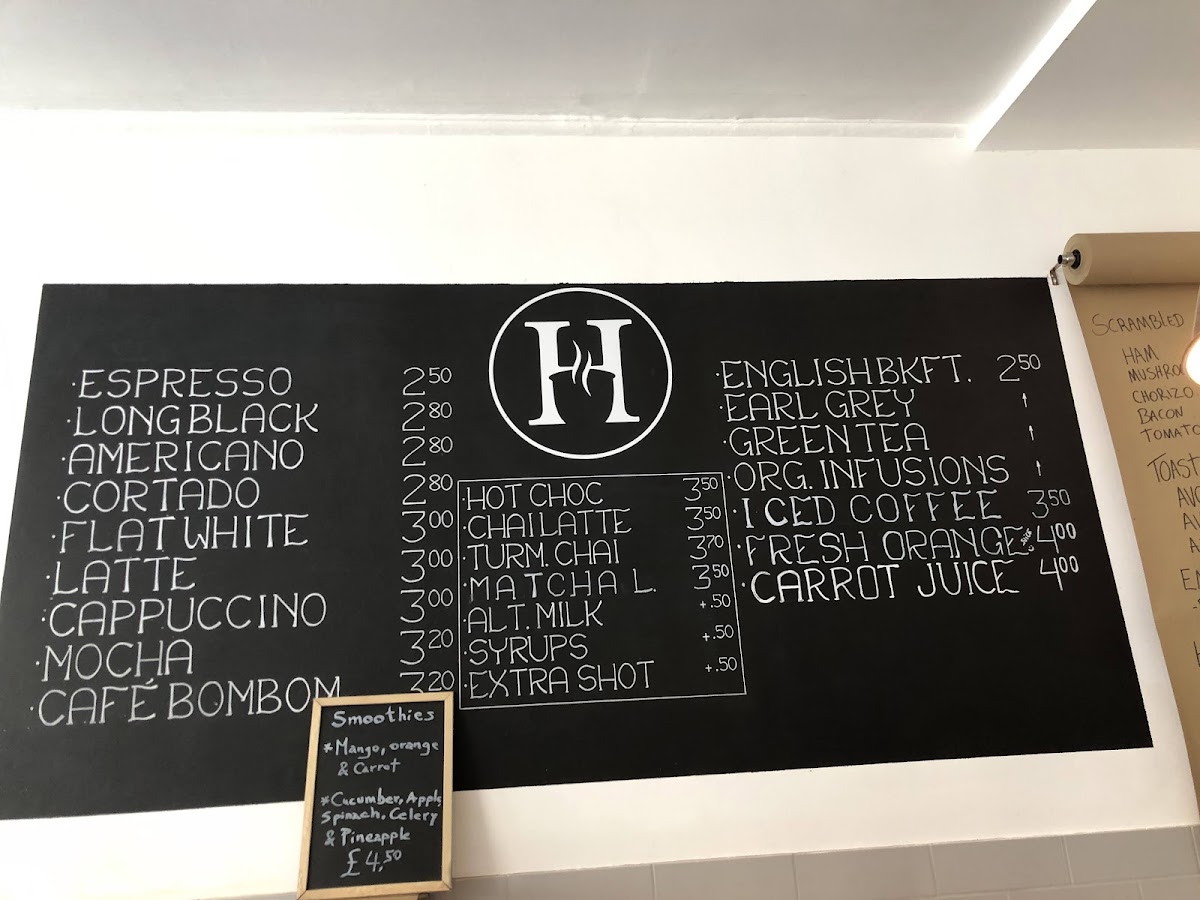 ·ESPRESSO 2⁵⁰
·LONG BLACK 2⁸⁰
·AMERICANO 2⁸⁰
·CORTADO 2⁸⁰
·FLAT WHITE 3⁰⁰
·LATTE 3⁰⁰
·CAPPUCCINO 3⁰⁰
·MOCHA 3²⁰
·CAFÉ BOMBOM 3²⁰
H
·HOT CHOC 3⁵⁰
·CHAI LATTE 3⁵⁰
·TURM. CHAI 3⁷⁰
·MATCHA L. 3⁵⁰
·ALT. MILK +.50
·SYRUPS +.50
·EXTRA SHOT +.50
·ENGLISH BKFT. 2⁵⁰
·EARL GREY ↑
·GREEN TEA ↑
·ORG. INFUSIONS ↑
·ICED COFFEE 3⁵⁰
·FRESH ORANGE JUICE 4⁰⁰
·CARROT JUICE 4⁰⁰
Smoothies
*Mango, orange
& Carrot
*Cucumber, Apple,
Spinach, Celery
& Pineapple
£4,⁵⁰
SCRAMBLED
HAM
CHORIZO
BACON